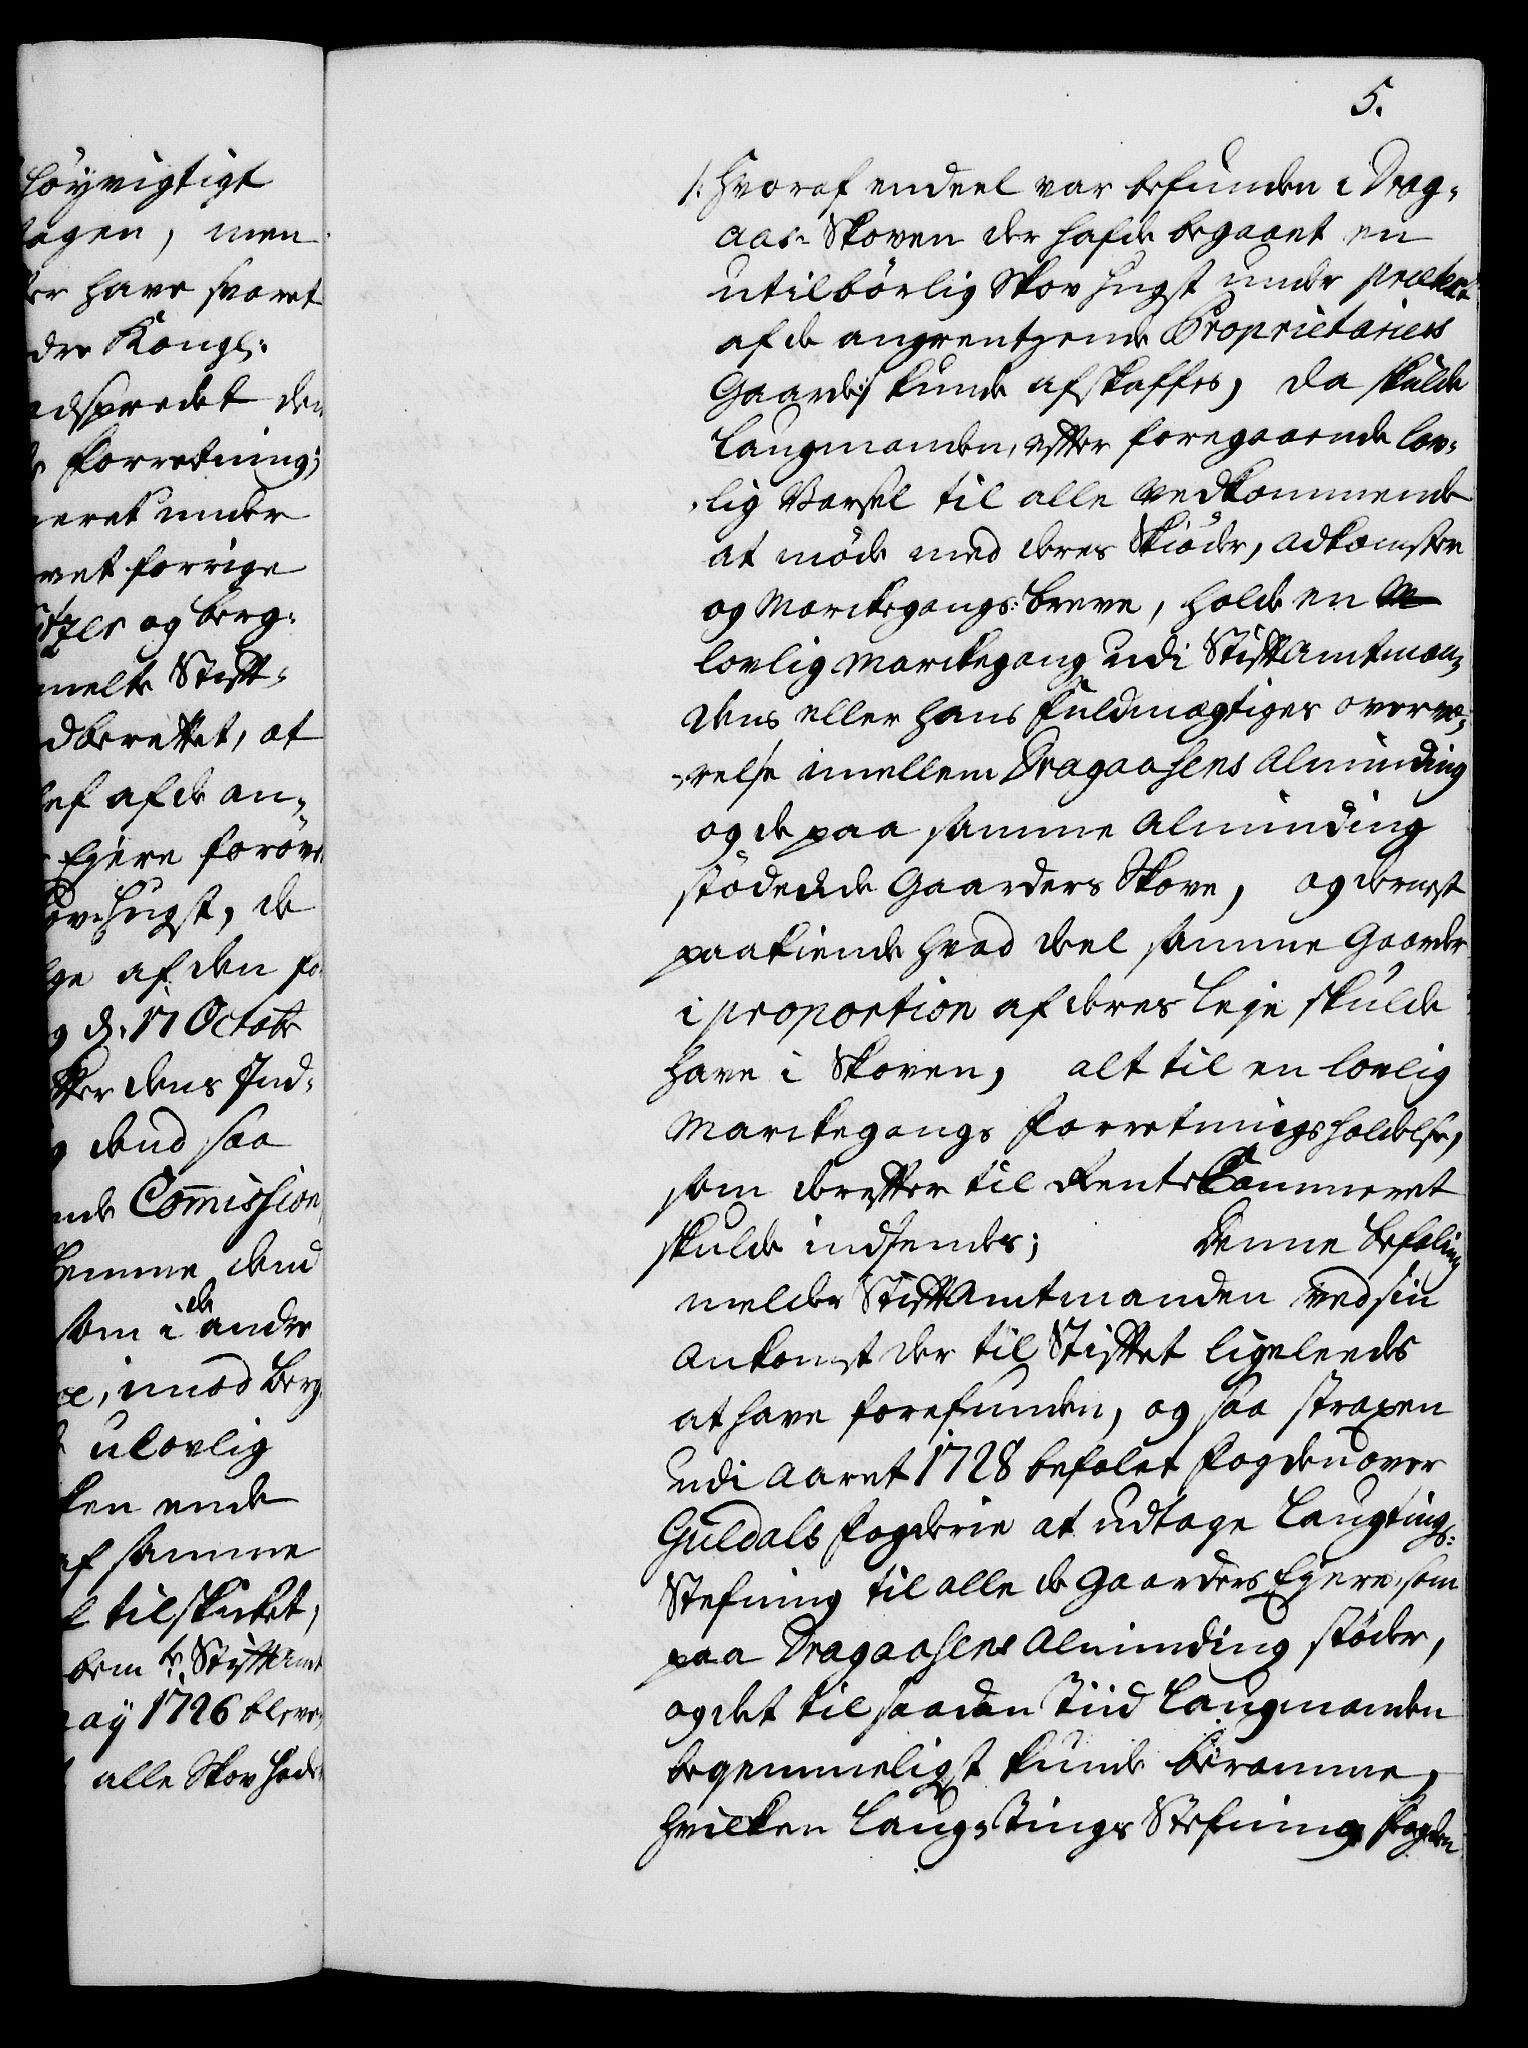 höyvigtigt
tagen, men
er have svaret
dre Kongl:
adspredet den
forretning;
eret under
vet forrige
og Berg-
melte Stift-
dberettet, at
lef af de an-
Ejere forøve
hugst, de
ge af den fo
g d. 17 Octobr
tter dens Ind-
g dend saa
nde Commission,
hemme dend
som i de andre
e, imod Berg
ulovlig
ken ende
af samme
tilskikket,
bem te StiftAmt
ay 1726 bleve,
alle Skov hade
5.
/: hvoraf endeel var befunden i Drag-
aas- Skoven der hafde begaaet en
utilbörlig Skov hugst under prætext
af de angrentzende Proprietariers
Gaarde:/ kunde afskaffes, da skulde
Laugmanden, efter foregaaende lov-
-lig Varsel til alle Vedkommende
at møde med deres Skiøder, adkomster
og Marckegangs-breve, holde en
lovlig Marckegang udi StiftAmtman-
dens eller hans fuldmægtiges overvæ-
-relse imellem Dragaasens Alminding
og de paa samme Alminding
stødende Gaarders Skove, og dernest
paakiende hvad deel samme Gaarder
i proportion af deres Leje skulde
have i Skoven, alt til en lovlig
Marckegangs Forretnings holdelse,
som derefter til RenteKammeret
skulde indsendes; Denne Befaling
melder StiftAmtmanden ved sin
Ankomst der til Stiftet ligeleedes
at have forefunden, og saa straxen
udi Aaret 1728 befalet fogden over
Guldals fogderie at udtage Laugtings-
Stefning til alle de Gaarders Ejere, som
paa Dragaasens Alminding støder,
og det til saadan Tiid Laugmanden
beqvemmeligst kunde beramme,
hvilken Laug-Tings Stefning fogden